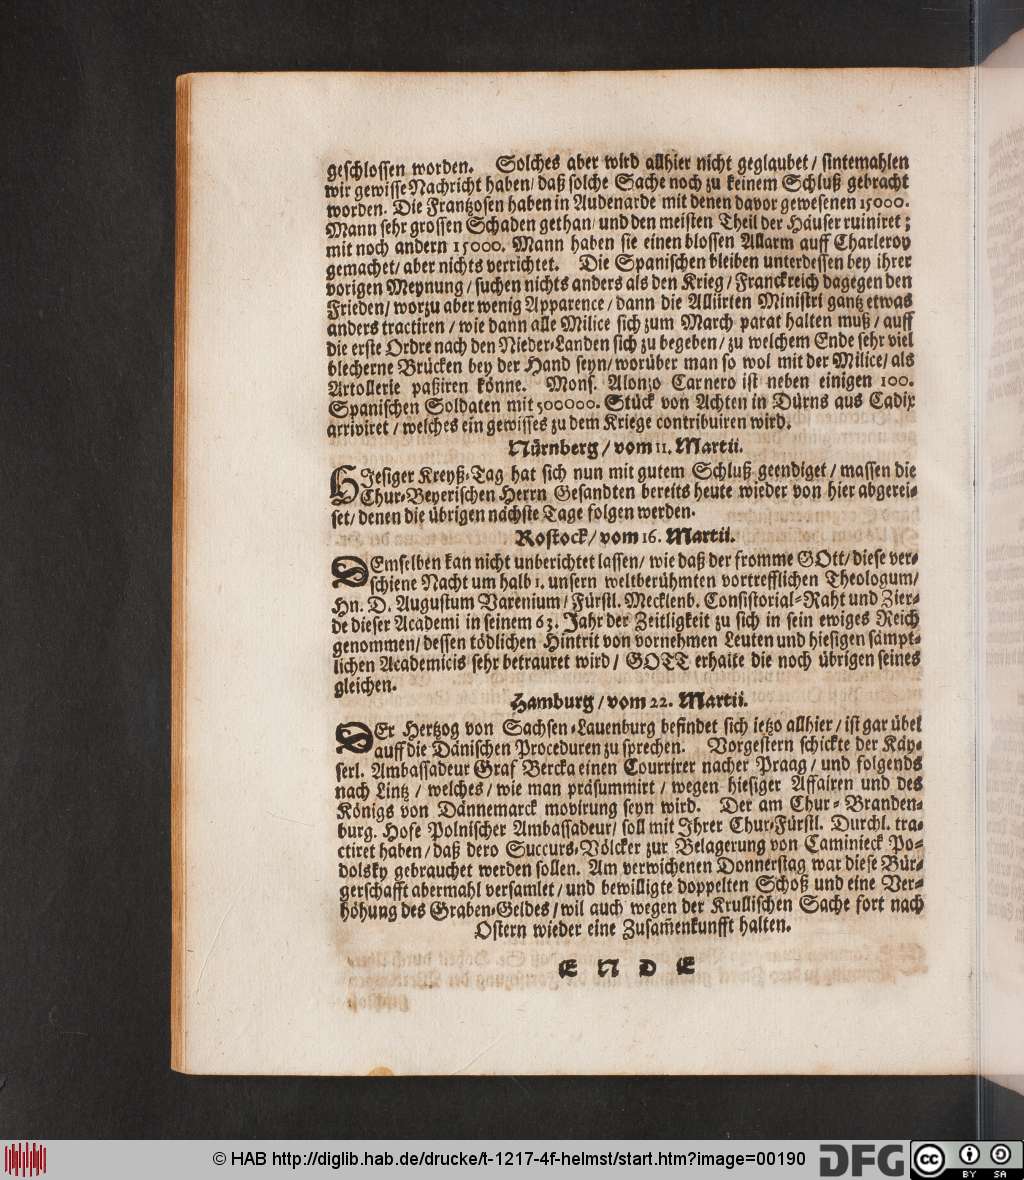 geschlossen worden. Solches aber wird allhier nicht geglaubet / sintemahlen
wir gewisse Nachricht haben / daß solche Sache noch zu keinem Schluß gebracht
worden. Die Frantzosen haben in Audenarde mit denen davor gewesenen 15000.
Mann sehr grossen Schaden gethan / und den meisten Theil der Häuser ruiniret ;
mit noch andern 15000. Mann haben sie einen blossen Allarm auff Charleroy
gemachet / aber nichts verrichtet. Die Spanischen bleiben unterdessen bey ihrer
vorigen Meynung / suchen nichts anders als den Krieg / Franckreich dagegen den
Frieden / worzu aber wenig Apparence / dann die Alliirten Ministri gantz etwas
anders tractiren / wie dann alle Milice sich zum March parat halten muß / auff
die erste Ordre nach den Nieder-Landen sich zu begeben / zu welchem Ende sehr viel
blecherne Brücken bey der Hand seyn / worüber man so wol mit der Milice / als
Artollerie paßiren könne. Mons. Alonzo Carnero ist neben einigen 100.
Spanischen Soldaten mit 500000. Stück von Achten in Dürns aus Cadix
arriviret / welches ein gewisses zu dem Kriege contribuiren wird.
Nürnberg / vom 11. Martii.
HJesiger Kreyß-Tag hat sich nun mit gutem Schluß geendiget / massen die
Chur-Beyerischen Herrn Gesandten bereits heute wieder von hier abgerei-
set / denen die übrigen nächste Tage folgen werden.
Rostock / vom 16. Martii.
DEmselben kan nicht unberichtet lassen / wie daß der fromme GOtt / diese ver-
schiene Nacht um halb 1. unsern weltberühmten vortrefflichen Theologum /
Hn. D. Augustum Varenium / Fürstl. Mecklenb. Consistorial-Raht und Zier-
de dieser Academi in seinem 63. Jahr der Zeitligkeit zu sich in sein ewiges Reich
genommen / dessen tödlichen Hintrit von vornehmen Leuten und hiesigen sämpt-
lichen Academicis sehr betrauret wird / GOTT erhalte die noch übrigen seines
gleichen.
Hamburg / vom 22. Martii.
DEr Hertzog von Sachsen-Lauenburg befindet sich ietzo allhier / ist gar übel
auff die Dänischen Proceduren zu sprechen. Vorgestern schickte der Käy-
serl. Ambassadeur Graf Bercka einen Courrirer nacher Praag / und folgends
nach Lintz / welches / wie man präsummirt / wegen hiesiger Affairen und des
Königs von Dännemarck movirung seyn wird. Der am Chur-Branden-
burg. Hofe Polnischer Ambassadeur / soll mit Jhrer Chur-Fürstl. Durchl. tra-
ctiret haben / daß dero Succurs-Völcker zur Belagerung von Caminieck Po-
dolsky gebrauchet werden sollen. Am verwichenen Donnerstag war diese Bür-
gerschafft abermahl versamlet / und bewilligte doppelten Schoß und eine Ver-
höhung des Graben-Geldes / wil auch wegen der Krullischen Sache fort nach
Ostern wieder eine Zusam̄enkunfft halten.
E N D E
© HAB http://diglib.hab.de/drucke/t-1217-4f-helmst/start.htm?image=00190
DFG
cc BY SA